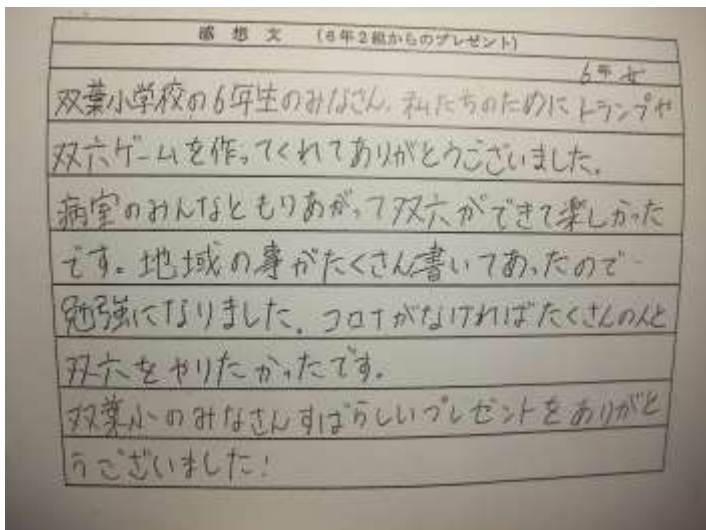 感想文 (6年2組からのプレゼント)
6年 女
双葉小学校の6年生のみなさん、私たちのためにトランプや
双六ゲームを作ってくれてありがとうございました。
病室のみんなともりあがって双六ができて楽しかった
です。地域の事がたくさん書いてあったので
勉強になりました。コロナがなければたくさんの人と
双六をやりたかったです。
双葉小のみなさんすばらしいプレゼントをありがと
うございました!